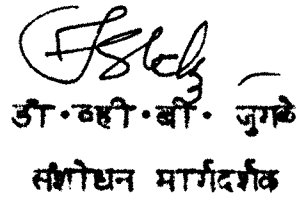 डॉ.व्ही.बी. जुगळे
संशोधन मार्गदर्शक